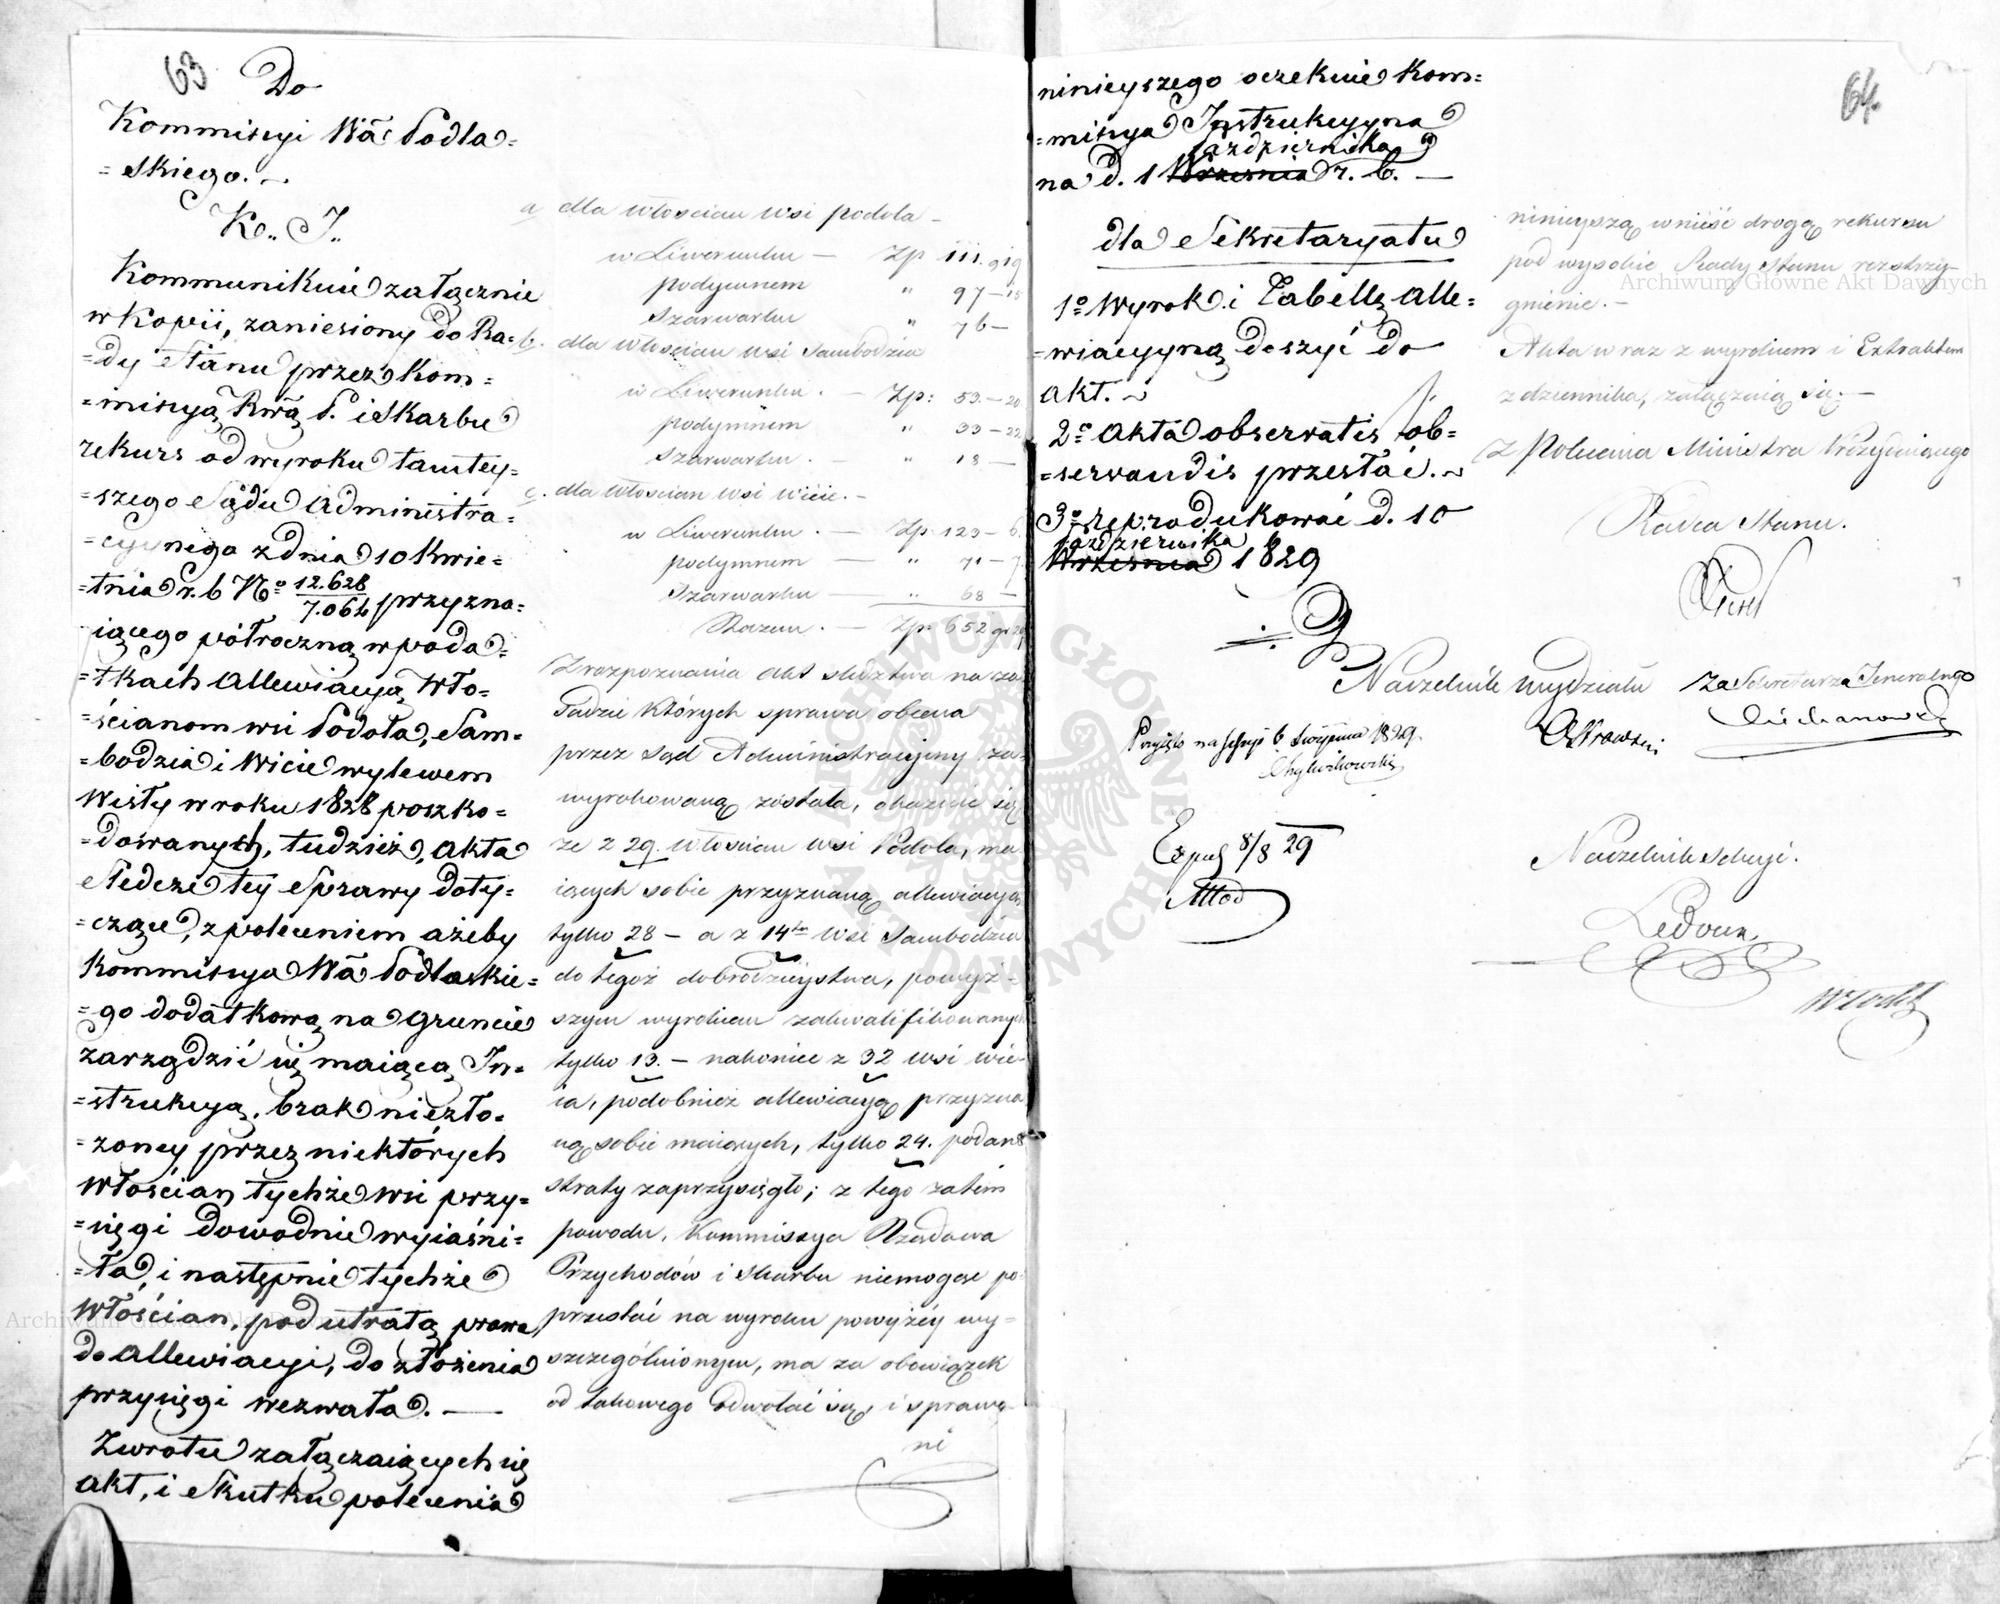 63
Do
Kommissyi Wa Podla=
=skiego. —
K.. I..
Kommunikuie załącznie
w Kopii, zaniesiony do Ra=
=dy Stanu przez Kom=
=missyą Rwą P. i Skarbu
rekurs od wyroku tamtey=
=szego Sądu Administra=
=cyynego z dnia 10 Kwie=
=tnia r. b No 12.628/7.064 przyzna=
iącego półroczną w poda=
=tkach allewiacyą Wło=
=ścianom wsi Podoła, Sam=
=bodzia i Wicie wylewem
Wisły w roku 1828 poszko=
=dowanych, tudzież akta
Śledcze tey Sprawy doty=
=czące, z poleceniem ażeby
Kommissya Wa Podlaskie=
=go dodatkową na gruncie
zarządzić się maiącą In=
=strukcyą, brak niezło=
=żoney przez niektórych
Włościan tychże wsi przy=
=sięgi dowodnie wyiaśni=
=ła, i następnie tychże
Włościan, pod utratą prawa
do allewiacyi, do złożenia
przysięgi wezwała. —
Zwrotu załączaiących się
akt, i Skutku polecenia
a, dla włościan wsi Podola —
w Liwerunku — Zp. 111. g 19
podymnem " 97 — 15
Szarwarku " 76 —
b. dla włościan wsi Sambodzia
w Liwerunku. — Zp: 53. — 20
podymnem " 33 — 22
Szarwarku. — " 18 —
c. dla Włościan wsi Wicie. —
w Liwerunku. — Zp. 123 — 6
podymnem — " 71 — 7
Szarwarku — " 68 —
Razem. — Zp. 652 gr 29
Z rozpoznania akt śledztwa na za=
sadzie których sprawa obecna
przez Sąd Administracyjny za=
wyrokowaną została, okazuie się
że z 29. włościan wsi Podola, ma
iących sobie przyznaną allewiacyą
tylko 28 — a z 14tu wsi Sambodzia
do tegoż dobrodzieystwa, powyż=
szym wyrokiem zakwalifikowanych
tylko 13. — nakoniec z 32 wsi Wi=
cia, podobnież allewiacyą przyzna
ną sobie maiących, tylko 24. podane
straty zaprzysięgło; z tego zatem
powodu, Kommissya Rządowa
Przychodów i Skarbu niemogąc po=
przestać na wyroku powyżéy wy=
szczególnionym, ma za obowiązek
od takowego odwołać się, i sprawę
ni
64.
ninieyszego oczekuie Kom=
=missya Instrukcyyna
Października
na d. 1 Września r. b. —
dla Sekretaryatu
1o Wyrok i Tabellę Alle=
=wiacyyną doszyć do
akt. ~
2o Akta observatis ob=
=servandis przesłać. ~
3o reprodukować d. 10
Października
Września 1829
ninieyszą wnieść drogą rekursu
pod wysokie Rady Stanu rozstrzy=
gnienie. —
Akta wraz z wyrokiem i Extraktem
z dziennika, załączaią się. —
Z Polecenia Ministra Prezyduiącego
Radca Stanu.
Naczelnik Wydziału
Ostrowski
Za Sekretarza Jeneralnego
Przyięto na sessyi 6 Sierpnia 1829.
Exped 8/8 29
Naczelnik Sekcyi.
Ledoux
Archiwum Główne Akt Dawnych
Archiwum Główne Akt Dawnych
ARCHIWUM GŁÓWNE AKT DAWNYCH